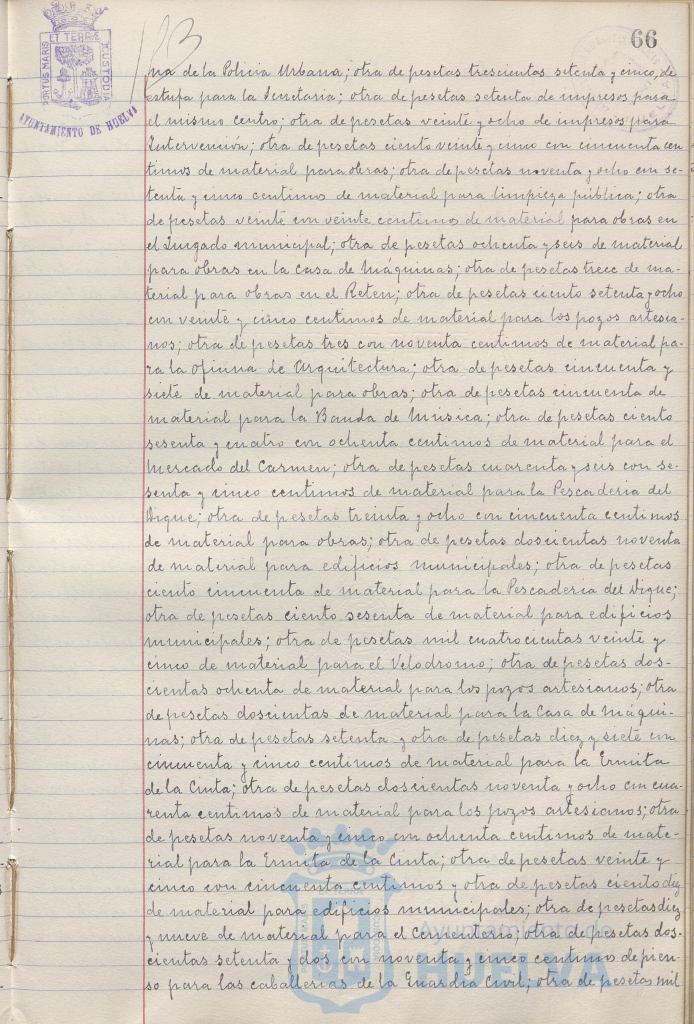 66
PORTUS MARIS ET TERRÆ CUSTODIA
AYUNTAMIENTO DE HUELVA
na de la Policia Urbana; otra de pesetas trescientas setenta y cinco, de
estufa para la Secretaria; otra de pesetas setenta de impresos para
el mismo centro; otra de pesetas veinte y ocho de impresos para
Intervención; otra de pesetas ciento veinte y cinco con cincuenta cen
timos de material para obras; otra de pesetas noventa y ocho con se-
tenta y cinco centimos de material para limpieza pública; otra
de pesetas veinte con veinte centimos de material para obras en
el Juzgado municipal; otra de pesetas ochenta y seis de material
para obras en la Casa de Máquinas; otra de pesetas trece de ma-
terial para obras en el Reten; otra de pesetas ciento setenta y ocho
con veinte y cinco centimos de material para los pozos artesia-
nos; otra de pesetas tres con noventa centimos de material pa-
ra la oficina de Arquitectura; otra de pesetas cincuenta y
siete de material para obras; otra de pesetas cincuenta de
material para la Banda de Música; otra de pesetas ciento
sesenta y cuatro con ochenta centimos de material para el
Mercado del Carmen; otra de pesetas cuarenta y seis con se-
senta y cinco centimos de material para la Pescaderia del
Dique; otra de pesetas treinta y ocho con cincuenta centimos
de material para obras; otra de pesetas doscientas noventa
de material para edificios municipales; otra de pesetas
ciento cincuenta de material para la Pescaderia del Dique;
otra de pesetas ciento sesenta de material para edificios
municipales; otra de pesetas mil cuatrocientas veinte y
cinco de material para el Velodromo; otra de pesetas dos-
cientas ochenta de material para los pozos artesianos; otra
de pesetas doscientas de material para la Casa de Máqui-
nas; otra de pesetas setenta y otra de pesetas diez y siete con
cincuenta y cinco centimos de material para la Ermita
de la Cinta; otra de pesetas doscientas noventa y ocho con cua-
renta centimos de material para los pozos artesianos; otra
de pesetas noventa y cinco con ochenta centimos de mate-
rial para la Ermita de la Cinta; otra de pesetas veinte y
cinco con cincuenta centimos y otra de pesetas ciento diez
de material para edificios municipales; otra de pesetas diez
y nueve de material para el Cementerio; otra de pesetas dos-
cientas setenta y dos con noventa y cinco centimos de pien-
so para las caballerias de la Guardia Civil; otra de pesetas mil
Ayuntamiento de
HUELVA